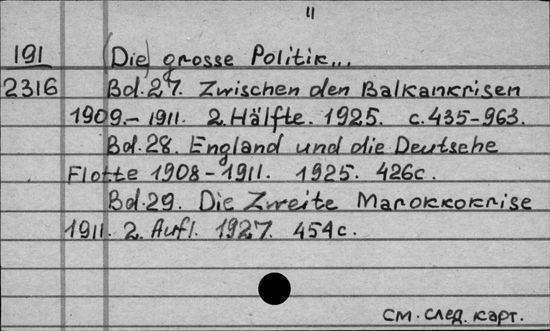 11
191 (Die) grosse Politik...
2316 Bd.27. Zwischen den Balkankrisen
1909.- 1911. 2.Hälfte. 1925. c.435-963.
Bd.28. England und die Deutsche
Flotte 1908-1911. 1925. 426c.
Bd.29. Die Zweite Marokkokrise
1911. 2. Aufl. 1927. 454c.
см. след. карт.